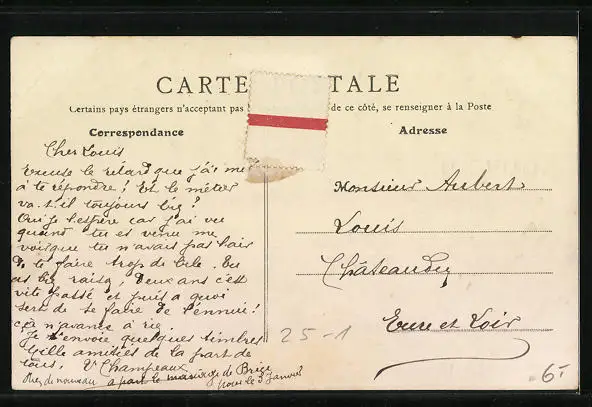 CARTE POSTALE
Certains pays étrangers n'acceptant pas de ce côté, se renseigner à la Poste
Correspondance
Adresse
Cher Louis
Excuse le retard que j'ai mis
à te répondre! Et le métier
va-t-il toujours big?
Oui je l'espère car j'ai vu
quand tu es venu me
voir que tu n'avais pas l'air
de te faire trop de bile. Tu
as big raison, Deux ans c'est
vite passé et puis a quoi
sert de se faire de l'ennui!
ça n'avance à rien.
Je t'envoie quelques timbres
Mille amitiés de la part de
tous. Champeaux
Rien de nouveau a part le mariage de
pour le 3 Janvier
Monsieur Aubert
Louis
Châteaudun
Eure et Loir
25-1
6.-